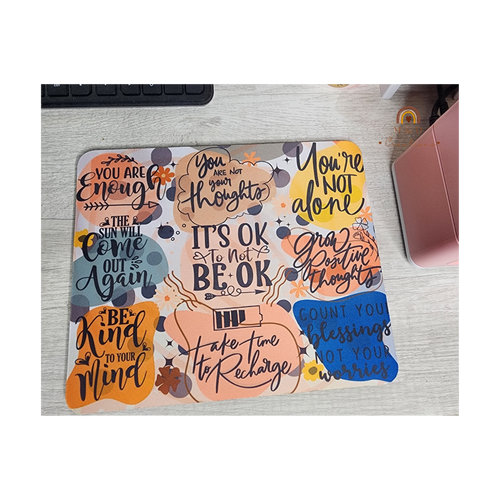 YOU ARE
Enough
you
ARE NOT
your
thoughts
You're
NOT
alone
THE
SUN WILL
Come
OUT
Again
IT'S OK
To Not
BE OK
Grow
Positive
thoughts
BE
Kind
TO YOUR
Mind
take time
to Recharge
COUNT YOUR
blessings
NOT YOUR
worries